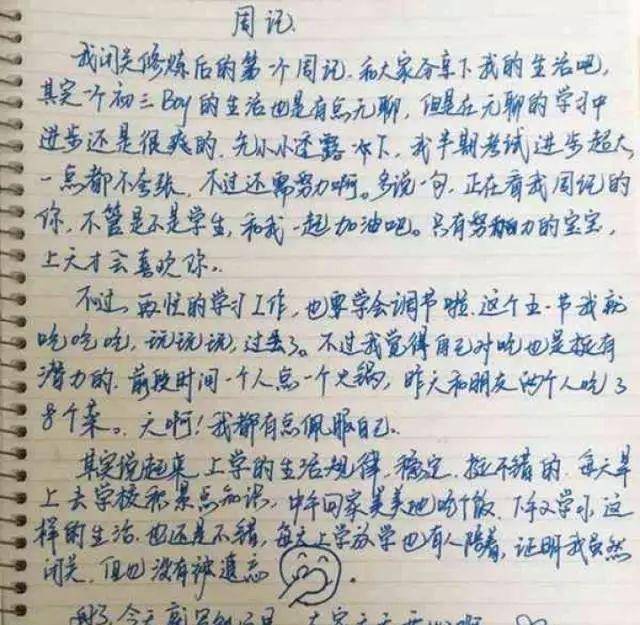 周记.
我闭关修炼后的第一个周记.和大家分享下我的生活吧,
其实一个初三Boy的生活也是有点无聊,但是在无聊的学习中
进步还是很爽的.先小小透露一下,我半期考试进步超大,
一点都不夸张,不过还需努力啊。多说一句,正在看我周记的
你,不管是不是学生,和我一起加油吧。只有努力的宝宝,
上天才会喜欢你。
不过,再忙的学习工作,也要学会调节啦.这个五一节我就
吃吃吃,玩玩玩,过去了。不过我觉得自己对吃也是挺有
潜力的.前段时间一个人点一个火锅,昨天和朋友两个人吃了
8个菜。天啊!我都有点佩服自己。
其实说起来,上学的生活规律,稳定,挺不错的.每天早
上去学校积累点知识,中午回家美美地吃个饭,下午又学习,这
样的生活.也还是不错,每天上学放学也有人陪着,证明我虽然
闭关,但也没有被遗忘.
今天就